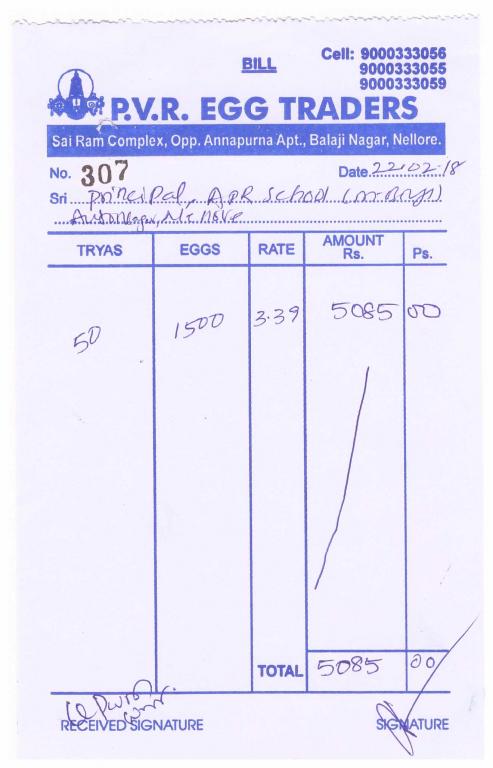 BILL
Cell: 9000333056
9000333055
9000333059
P.V.R. EGG TRADERS
Sai Ram Complex, Opp. Annapurna Apt., Balaji Nagar, Nellore.
No. 307 Date 22-02-18
Sri Principal, APR School
TRYAS EGGS RATE AMOUNT Rs. Ps.
50 1500 3.39 5085 00
TOTAL 5085 00
RECEIVED SIGNATURE SIGNATURE